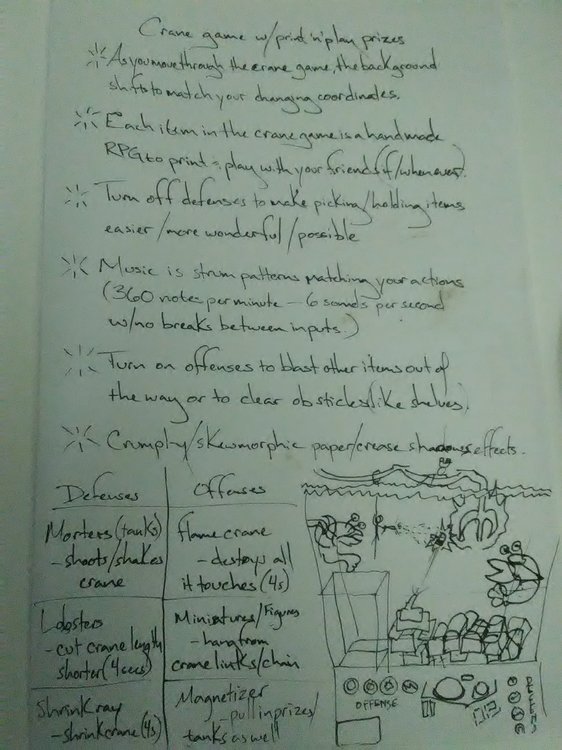 Crane game w/print 'n' play prizes
As you move through the crane game, the background
shifts to match your changing coordinates.
Each item in the crane game is a handmade
RPG to print & play with your friends (if/whenever).
Turn off defenses to make picking/holding items
easier/more wonderful/possible
Music is strum patterns matching your actions
(360 notes per minute – 6 sounds per second
w/no breaks between inputs.)
Turn on offenses to blast other items out of
the way or to clear obsticles (like shelves).
Crumply/skewmorphic paper/crease shadows effects.
Defenses
Morters (tanks)
- shoots/shakes
crane
Lobsters
- cut crane length
shorter (4 secs)
Shrink ray
- shrink crane (4s)
Offenses
flame crane
- destroys all
it touches (4s)
Miniatures/Figures
- hang from
crane links/chain
Magnetizer
- pull in prizes/
tanks as well
OFFENSE
DEFENSE